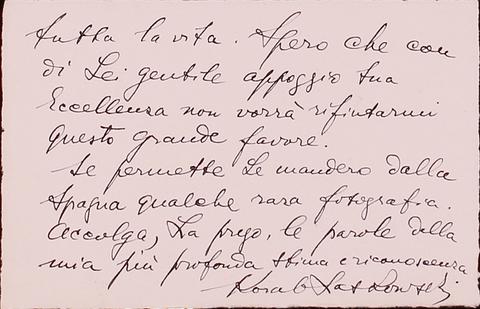 tutta la vita. Spero che con
di Lei gentile appoggio Sua
Eccellenza non vorrà rifiutarmi
questo grande favore.
Se permette Le manderò dalla
Spagna qualche rara fotografia.
Accolga, La prego, le parole della
mia più profonda stima e riconoscenza